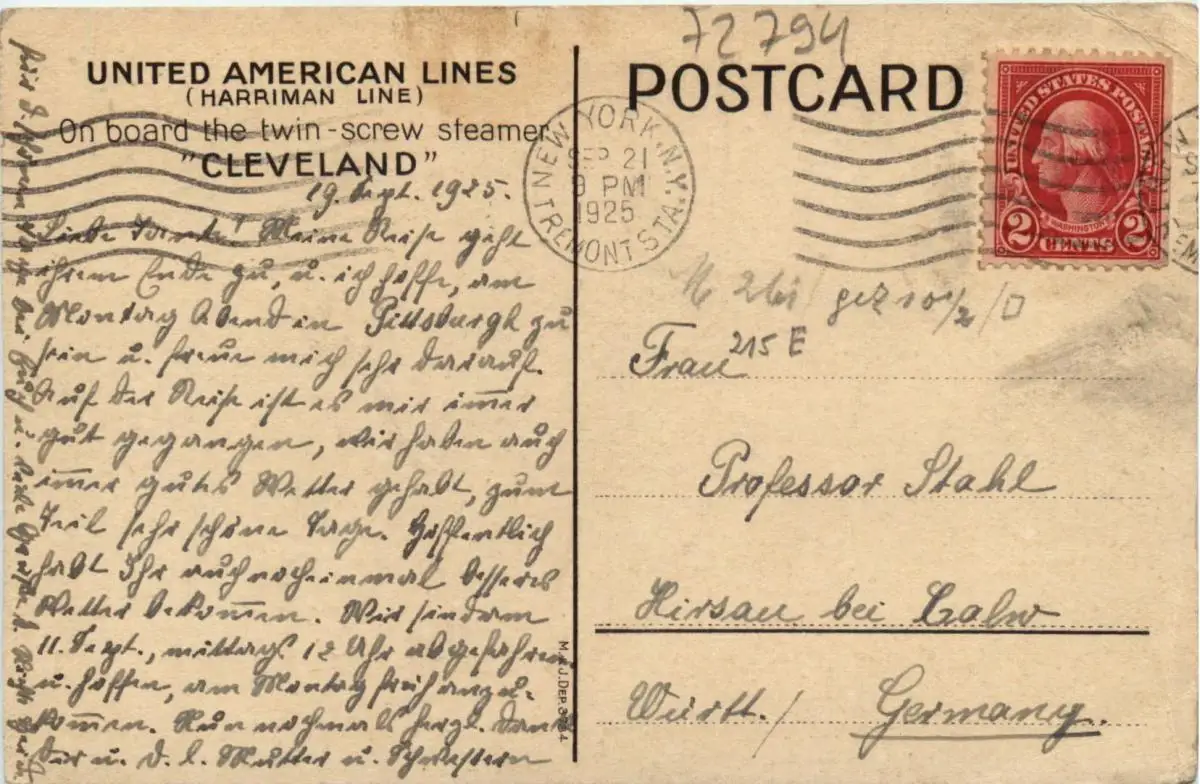 72794
UNITED AMERICAN LINES
(HARRIMAN LINE)
On board the twin-screw steamer
"CLEVELAND"
19. Sept. 1925.
Liebe Tante! Meine Reise geht
ihrem Ende zu, u. ich hoffe, am
Montag Abend in Pittsburgh zu
sein u. freue mich sehr darauf.
Auf der Reise ist es mir im̅er
gut gegangen, wir haben auch
im̅er gutes Wetter gehabt, zum
Teil sehr schöne Tage. Hoffentlich
habt Ihr auch noch einmal besseres
Wetter bekom̅en. Wir sind am
11. Sept., mittags 12 Uhr abgefahren
u. hoffen, am Montag früh anzu-
kom̅en. Nun nochmals herzl. Dank
Dir u. d. l. Mutter u. Schwestern
Tage bei Euch u. viele Grüße
POSTCARD
NEW YORK, N.Y.
SEP 21
9 PM
1925
TREMONT STA.
UNITED STATES POSTAGE
WASHINGTON
2 CENTS 2
gez 10 1/2 / □
215 E
Frau
Professor Stahl
Hirsau bei Calw
Württ. / Germany.